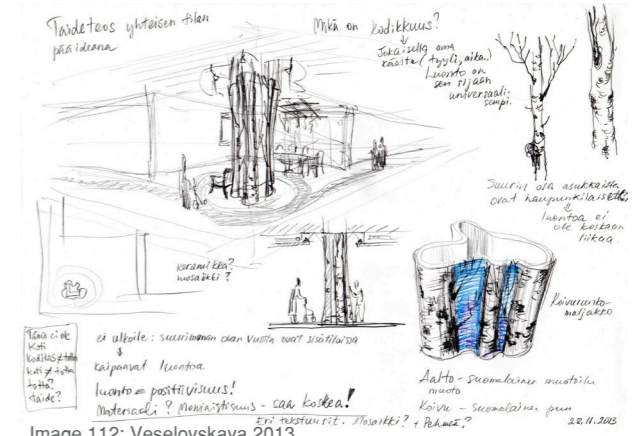 Taideteos yhteisen tilan
pääideana
Mikä on kodikkuus?
Jokaisella oma
käsite (tyyli, aika..)
Luonto on
sen sijaan
universaali-
sempi.
Suurin osa asukkaista
ovat kaupunkilaisia
luontoa ei
ole koskaan
liikaa.
keramiikka?
mosaiikki?
Koivurunko-
maljakko
Tämä ei ole
koti
kodikas ≠
koti ≠
totta?
taide?
ei ulkoile: suurimman osan vuotta ovat sisätiloissa
kaipaavat luontoa
luonto = positiivisuus!
Materiaali? Moniaistisuus - saa koskea!
Eri tekstuurit. Mosaiikki? + Pehmeä?
Aalto - suomalainen muotoilu
muoto
Koivu - suomalainen puu
28.11.2013
Image 112: Veselovskaya 2013